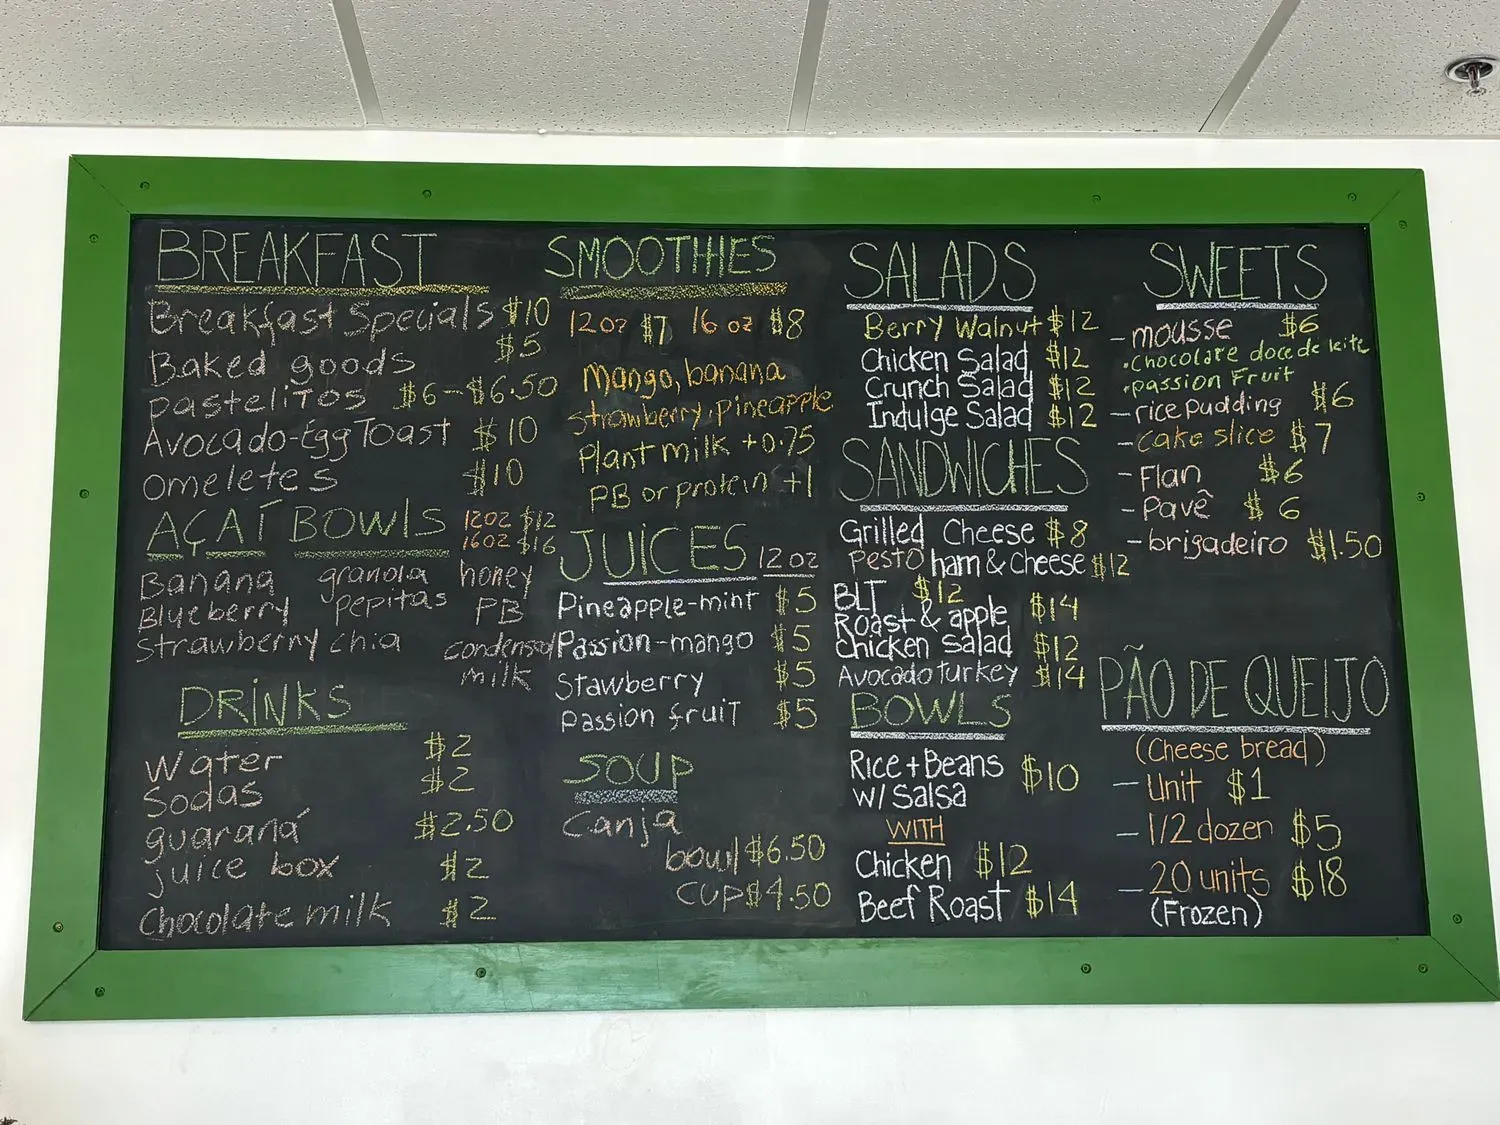 BREAKFAST
Breakfast Specials $10
Baked goods $5
pastelitos $6-$6.50
Avocado-Egg Toast $10
omeletes $10
AÇAÍ BOWLS 12oz $12
16oz $16
Banana granola honey
Blueberry pepitas PB
Strawberry chia condensed
milk
DRINKS
Water $2
Sodas $2
guaraná $2.50
juice box $2
Chocolate milk $2
SMOOTHIES
12oz $7 16 oz $8
Mango, banana
strawberry, pineapple
Plant milk +0.75
PB or protein +1
JUICES 12 oz
Pineapple-mint $5
Passion-mango $5
Stawberry $5
Passion fruit $5
SOUP
Canja
bowl $6.50
cup $4.50
SALADS
Berry Walnut $12
Chicken Salad $12
Crunch Salad $12
Indulge Salad $12
SANDWICHES
Grilled Cheese $8
Pesto ham & Cheese $12
BLT $12
Roast & apple $14
Chicken Salad $12
Avocado turkey $14
BOWLS
Rice + Beans $10
w/ Salsa
WITH
Chicken $12
Beef Roast $14
SWEETS
- mousse $6
• Chocolate doce de leite
• passion Fruit
- rice pudding $6
- cake slice $7
- Flan $6
- Pavê $6
- brigadeiro $1.50
PÃO DE QUEIJO
(Cheese bread)
- Unit $1
- 1/2 dozen $5
- 20 units $18
(Frozen)